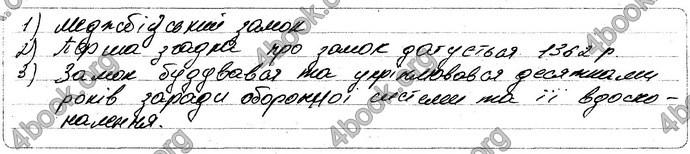 1) Меджибізький замок
2) Перша згадка про замок датується 1362 р.
3) Замок будувався та укріплювався десятками
років заради оборонної системи та її вдоско-
налення.
4book.org